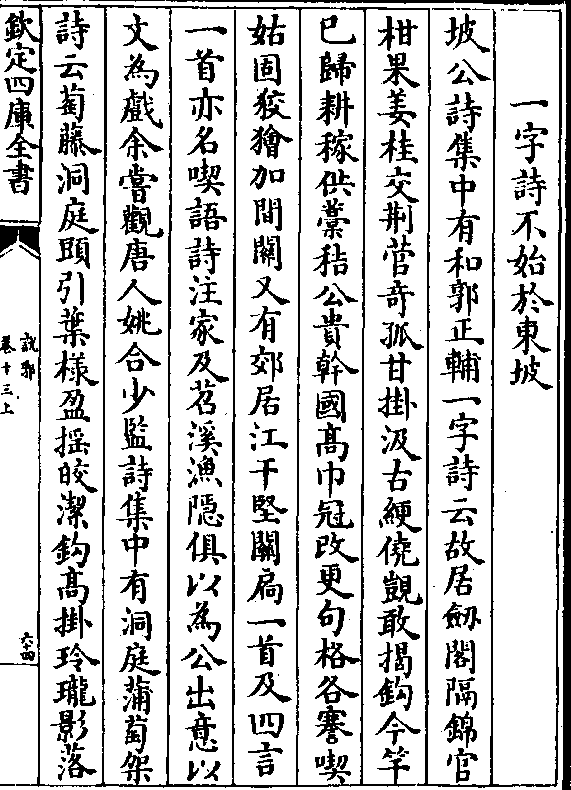 一字詩不始於東坡
坡公詩集中有和郭正輔一字詩云故居劒閣隔錦官
柑果姜桂交荆菅竒孤甘掛汲古綆僥覬敢揭鈎今竿
已歸耕稼供藁秸公貴幹國髙巾冠改更句格各謇喫
姑固狡獪加間闗又有郊居江干堅闗扄一首及四言
一首亦名喫語詩注家及苕溪漁隱俱以為公出意以
文為戲余嘗觀唐人姚合少監詩集中有洞庭蒲萄架
詩云萄藤洞庭頭引葉様盈揺皎潔鈎髙掛玲瓏影落
欽定四庫全書
說郛
卷十三上
六十四